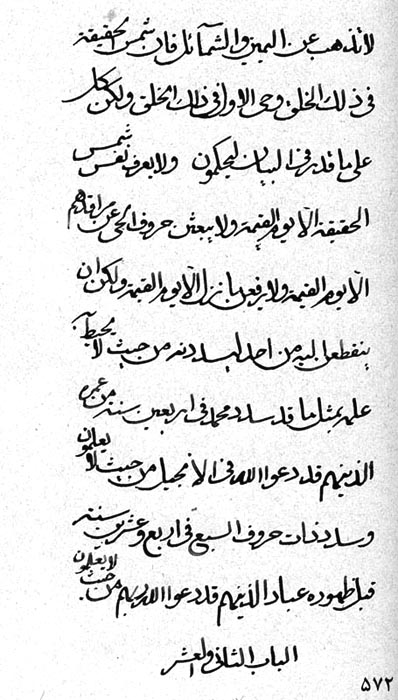 لا تذهب عن اليمين والشمائل فان شمس الحقيقة
فى ذلك الخلق وحى الاول فى ذلك الخلق ولكن كل
على ما قدر فى البيان ليحكمون ولا يعرف نفس شمس
الحقيقة الا يوم القيمة ولا يبعثن حروف الحى عن مراقدهم
الا يوم القيمة ولا يرفعن ما نزل الا يوم القيمة ولكن ان
ينقطعن اليه من احد ليسددنه من حيث لا يحيط به
علمه بمثل ما قد سدد محمد فى اربعين سنة من عمره
الذينهم قد دعوا الله فى الانجيل من حيث لا يعلمون
وسدد ذات حروف السبع فى اربع وعشرين سنة
قبل ظهوره عباد الذينهم قد دعوا الله ربهم من حيث لا يعلمون
الباب الثانى والعشر
۵۷۲